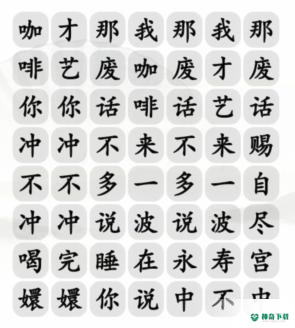 咖才那我那我那
啡艺废咖废才废
你你话啡话艺话
冲冲不来不来赐
不不多一多一自
冲冲说波说波尽
喝完睡在永寿宫
嬛嬛你说中不中
神奇下载